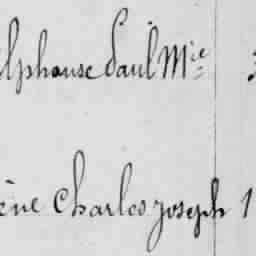 lphonse Paul Mie 3
ène Charles Joseph 1